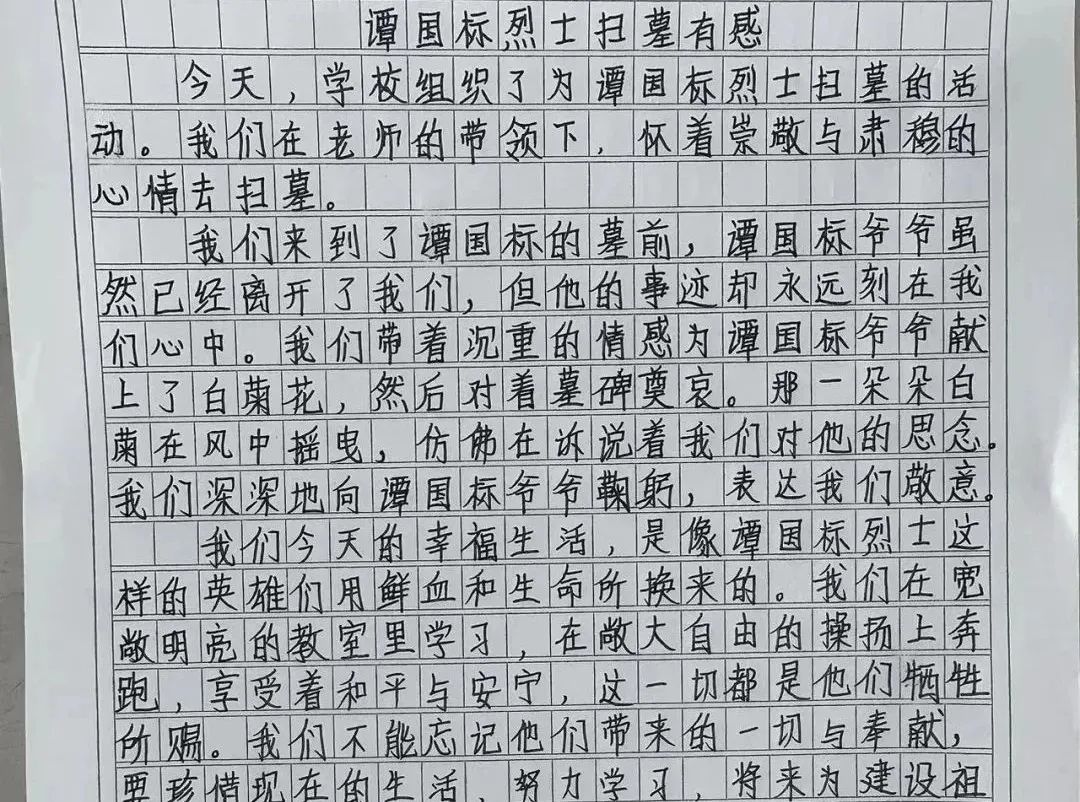 谭国标烈士扫墓有感
今天，学校组织了为谭国标烈士扫墓的活
动。我们在老师的带领下，怀着崇敬与肃穆的
心情去扫墓。
我们来到了谭国标的墓前，谭国标爷爷虽
然已经离开了我们，但他的事迹却永远刻在我
们心中。我们带着沉重的情感为谭国标爷爷献
上了白菊花，然后对着墓碑奠哀。那一朵朵白
菊在风中摇曳，仿佛在诉说着我们对他的思念。
我们深深地向谭国标爷爷鞠躬，表达我们敬意。
我们今天的幸福生活，是像谭国标烈士这
样的英雄们用鲜血和生命所换来的。我们在宽
敞明亮的教室里学习，在敞大自由的操扬上奔
跑，享受着和平与安宁，这一切都是他们牺牲
所赐。我们不能忘记他们带来的一切与奉献，
要珍惜现在的生活，努力学习，将来为建设祖